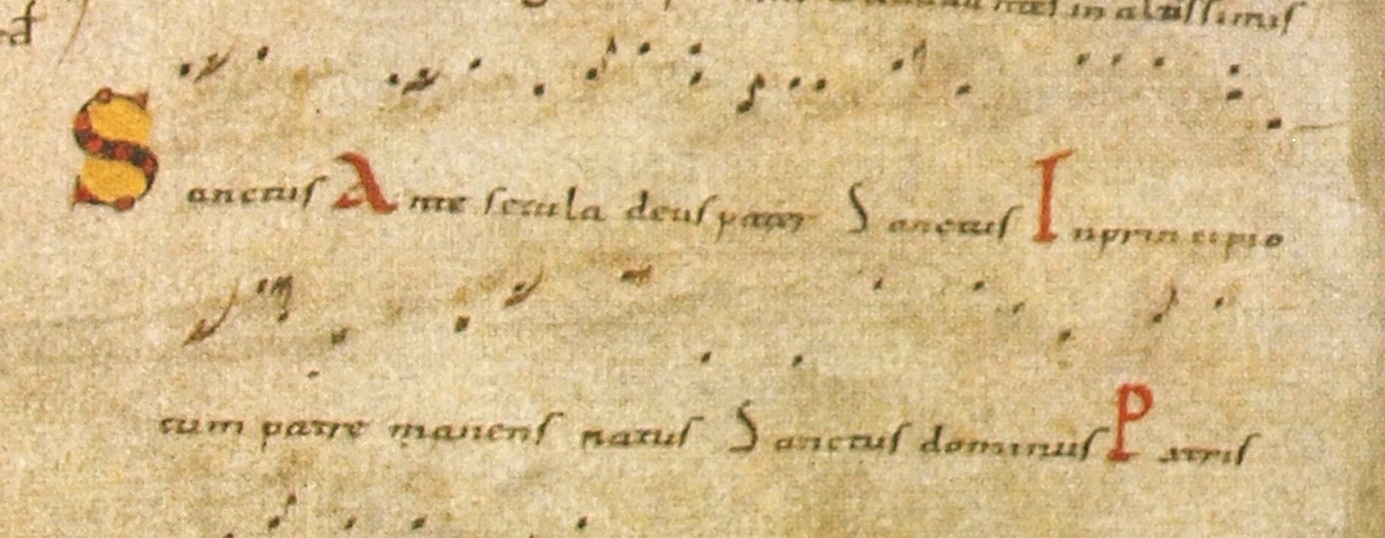 in altissimis
Sanctus Ante secula deus pater Sanctus In principio
cum patre manens natus Sanctus dominus Patris